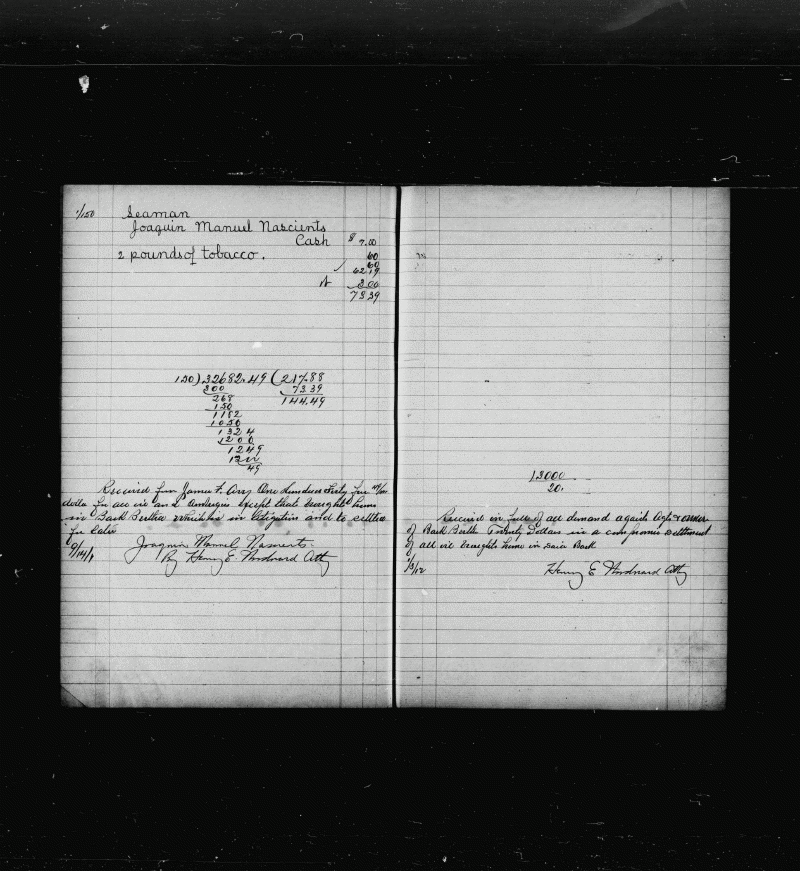 1/150 Seaman
Joaquin Manuel Nascients
Cash $ 7.00
2 pounds of tobacco. 60
60
62 19
3 00
73 39
150 ) 32682.49 ( 217.88
300 73 39
268 144.49
150
1182
1050
1324
1200
1249
1200
49
Received from James F. One Hundred forty
dolls for all oil and Ambergris except that brought home
in Bark Bertha which is in litigation and to settled
for later
Joaquin Manuel Nascients
9/14/ By Henry E. Woodward Atty
13000
20.
Received in full of all demand against Agts & owners
of Bark Bertha Twenty Dollars in a compromise settlement
of all oil brought home in said Bark
/3/12
Henry E Woodward Atty